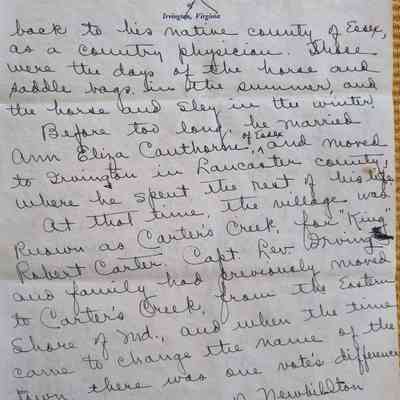 Irvington, Virginia
back to his native county of Essex,
as a country physician. Those
were the days of the horse and
saddle bags in the summer, and
the horse and sley in the winter.
Before too long, he married
Ann Eliza Cauthorne, of Essex and moved
to Irvington in Lancaster county,
where he spent the rest of his life.
At that time, the village was
known as Carter's Creek, for "King"
Robert Carter. Capt. Lev. Irving
and family had previously moved
to Carter's Creek, from the Eastern
Shore of Md., and when the time
came to change the name of the
town there was one vote's difference